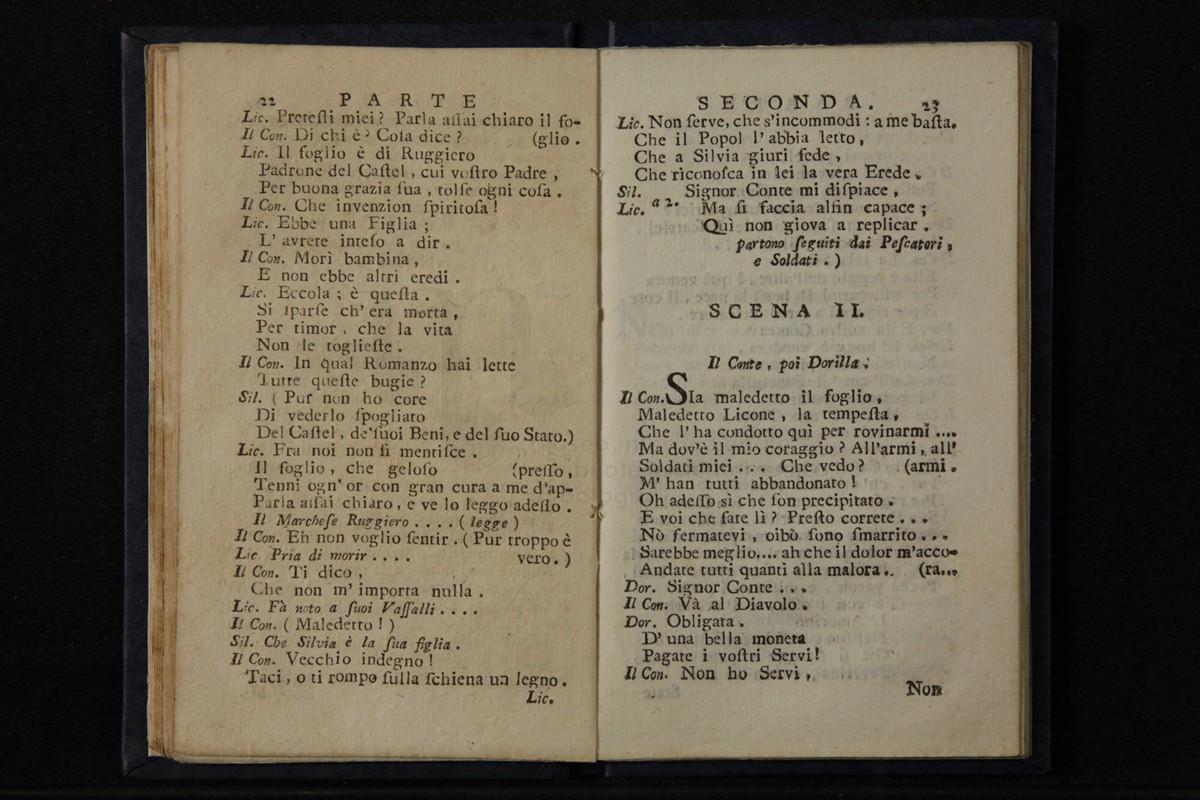 22 PARTE
Lic. Pretesti miei? Parla assai chiaro il fo-
Il Con. Di chi è? Cosa dice? (glio.
Lic. Il foglio è di Ruggiero
Padrone del Castel, cui vostro Padre,
Per buona grazia sua, tolse ogni cosa.
Il Con. Che invenzion spiritosa!
Lic. Ebbe una Figlia;
L' avrete inteso a dir.
Il Con. Morì bambina,
E non ebbe altri eredi.
Lic. Eccola; è questa.
Si sparse ch' era morta,
Per timor, che la vita
Non le toglieste.
Il Con. In qual Romanzo hai lette
Tutte queste bugie?
Sil. (Pur non ho core
Di vederlo spogliato
Del Castel, de'suoi Beni, e del suo Stato.)
Lic. Fra noi non si mentisce.
Il foglio, che geloso (presso,
Tenni ogn' or con gran cura a me d'ap-
Parla assai chiaro, e ve lo leggo adesso.
Il Marchese Ruggiero .... (legge)
Il Con. Eh non voglio sentir. (Pur troppo è
Lic. Pria di morir .... vero.)
Il Con. Ti dico,
Che non m' importa nulla.
Lic. Fà noto a suoi Vassalli ....
Il Con. (Maledetto!)
Sil. Che Silvia è la sua figlia.
Il Con. Vecchio indegno!
Taci, o ti rompo sulla schiena un legno.
Lic.
SECONDA. 23
Lic. Non serve, che s'incommodi: a me basta.
Che il Popol l' abbia letto,
Che a Silvia giuri fede,
Che riconosca in lei la vera Erede.
Sil. Signor Conte mi dispiace,
Lic. a 2. Ma si faccia alfin capace;
Quì non giova a replicar.
partono seguiti dai Pescatori,
e Soldati.)
SCENA II.
Il Conte, poi Dorilla.
Il Con. SIa maledetto il foglio,
Maledetto Licone, la tempesta,
Che l' ha condotto quì per rovinarmi ....
Ma dov'è il mio coraggio? All'armi, all'
Soldati miei ... Che vedo? (armi.
M' han tutti abbandonato!
Oh adesso sì che son precipitato.
E voi che fate lì? Presto correte ...
Nò fermatevi, oibò sono smarrito ...
Sarebbe meglio.... ah che il dolor m'acco-
Andate tutti quanti alla malora.. (ra...
Dor. Signor Conte ...
Il Con. Và al Diavolo.
Dor. Obligata.
D' una bella moneta
Pagate i vostri Servi!
Il Con. Non ho Servi,
Non